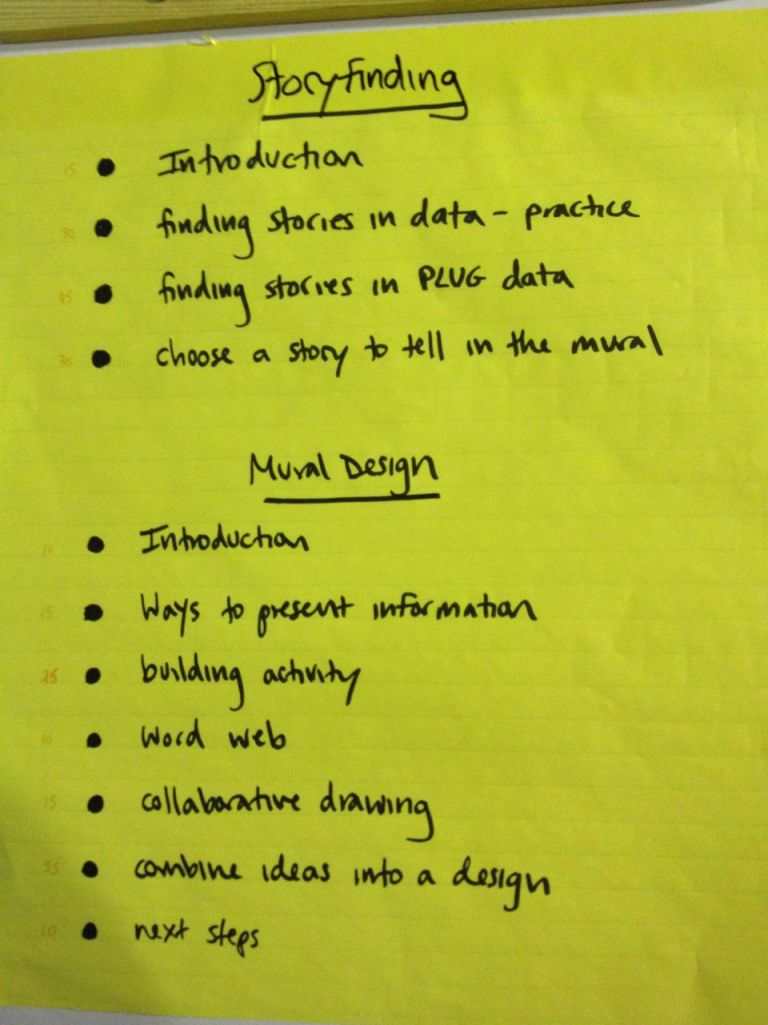 Storyfinding
15 • Introduction
30 • finding stories in data - practice
45 • finding stories in PLUG data
30 • choose a story to tell in the mural
Mural Design
10 • Introduction
15 • Ways to present information
25 • building activity
10 • word web
15 • collaborative drawing
35 • combine ideas into a design
10 • next steps